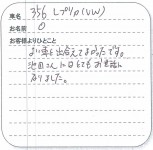 車名 356レプリカ(VW)
お名前 O
お客様よりひとこと
良い車に出会えてよかったです。
池田さんにはとてもお世話に
なりました。